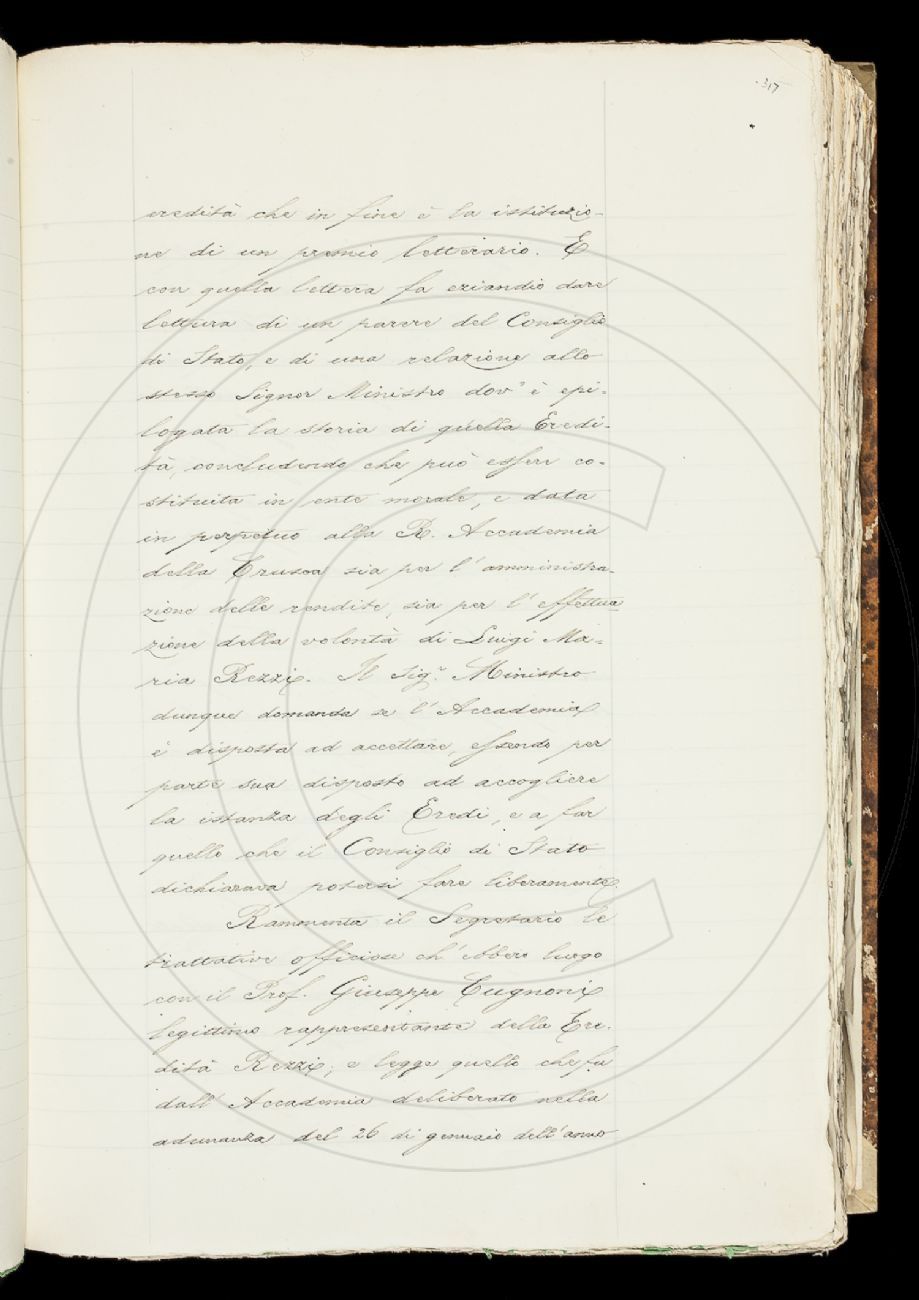 317
eredità che in fine è la istituzio-
ne di un premio letterario. E
con quella lettera fa eziandio dare
lettura di un parere del Consiglio
di Stato, e di una relazione allo
stesso Signor Ministro dov' è epi-
logata la storia di quella Eredi-
tà, concludendo che può essere co-
stituita in ente morale, e data
in perpetuo alla R. Accademia
della Crusca sia per l' amministra-
zione delle rendite, sia per l' effettua
zione della volontà di Luigi Ma-
ria Rezzi. Il Sig.r Ministro
dunque domanda se l' Accademia
è disposta ad accettare, essendo per
parte sua disposto ad accogliere
la istanza degli Eredi, e a far
quello che il Consiglio di Stato
dichiarava potersi fare liberamente.
Rammenta il Segretario le
trattative officiose ch' ebbero luogo
con il Prof. Giuseppe Cugnoni
legittimo rappresentante della Ere-
dità Rezzi; e legge quello che fu
dall' Accademia deliberato nella
adunanza del 26 di gennaio dell' anno